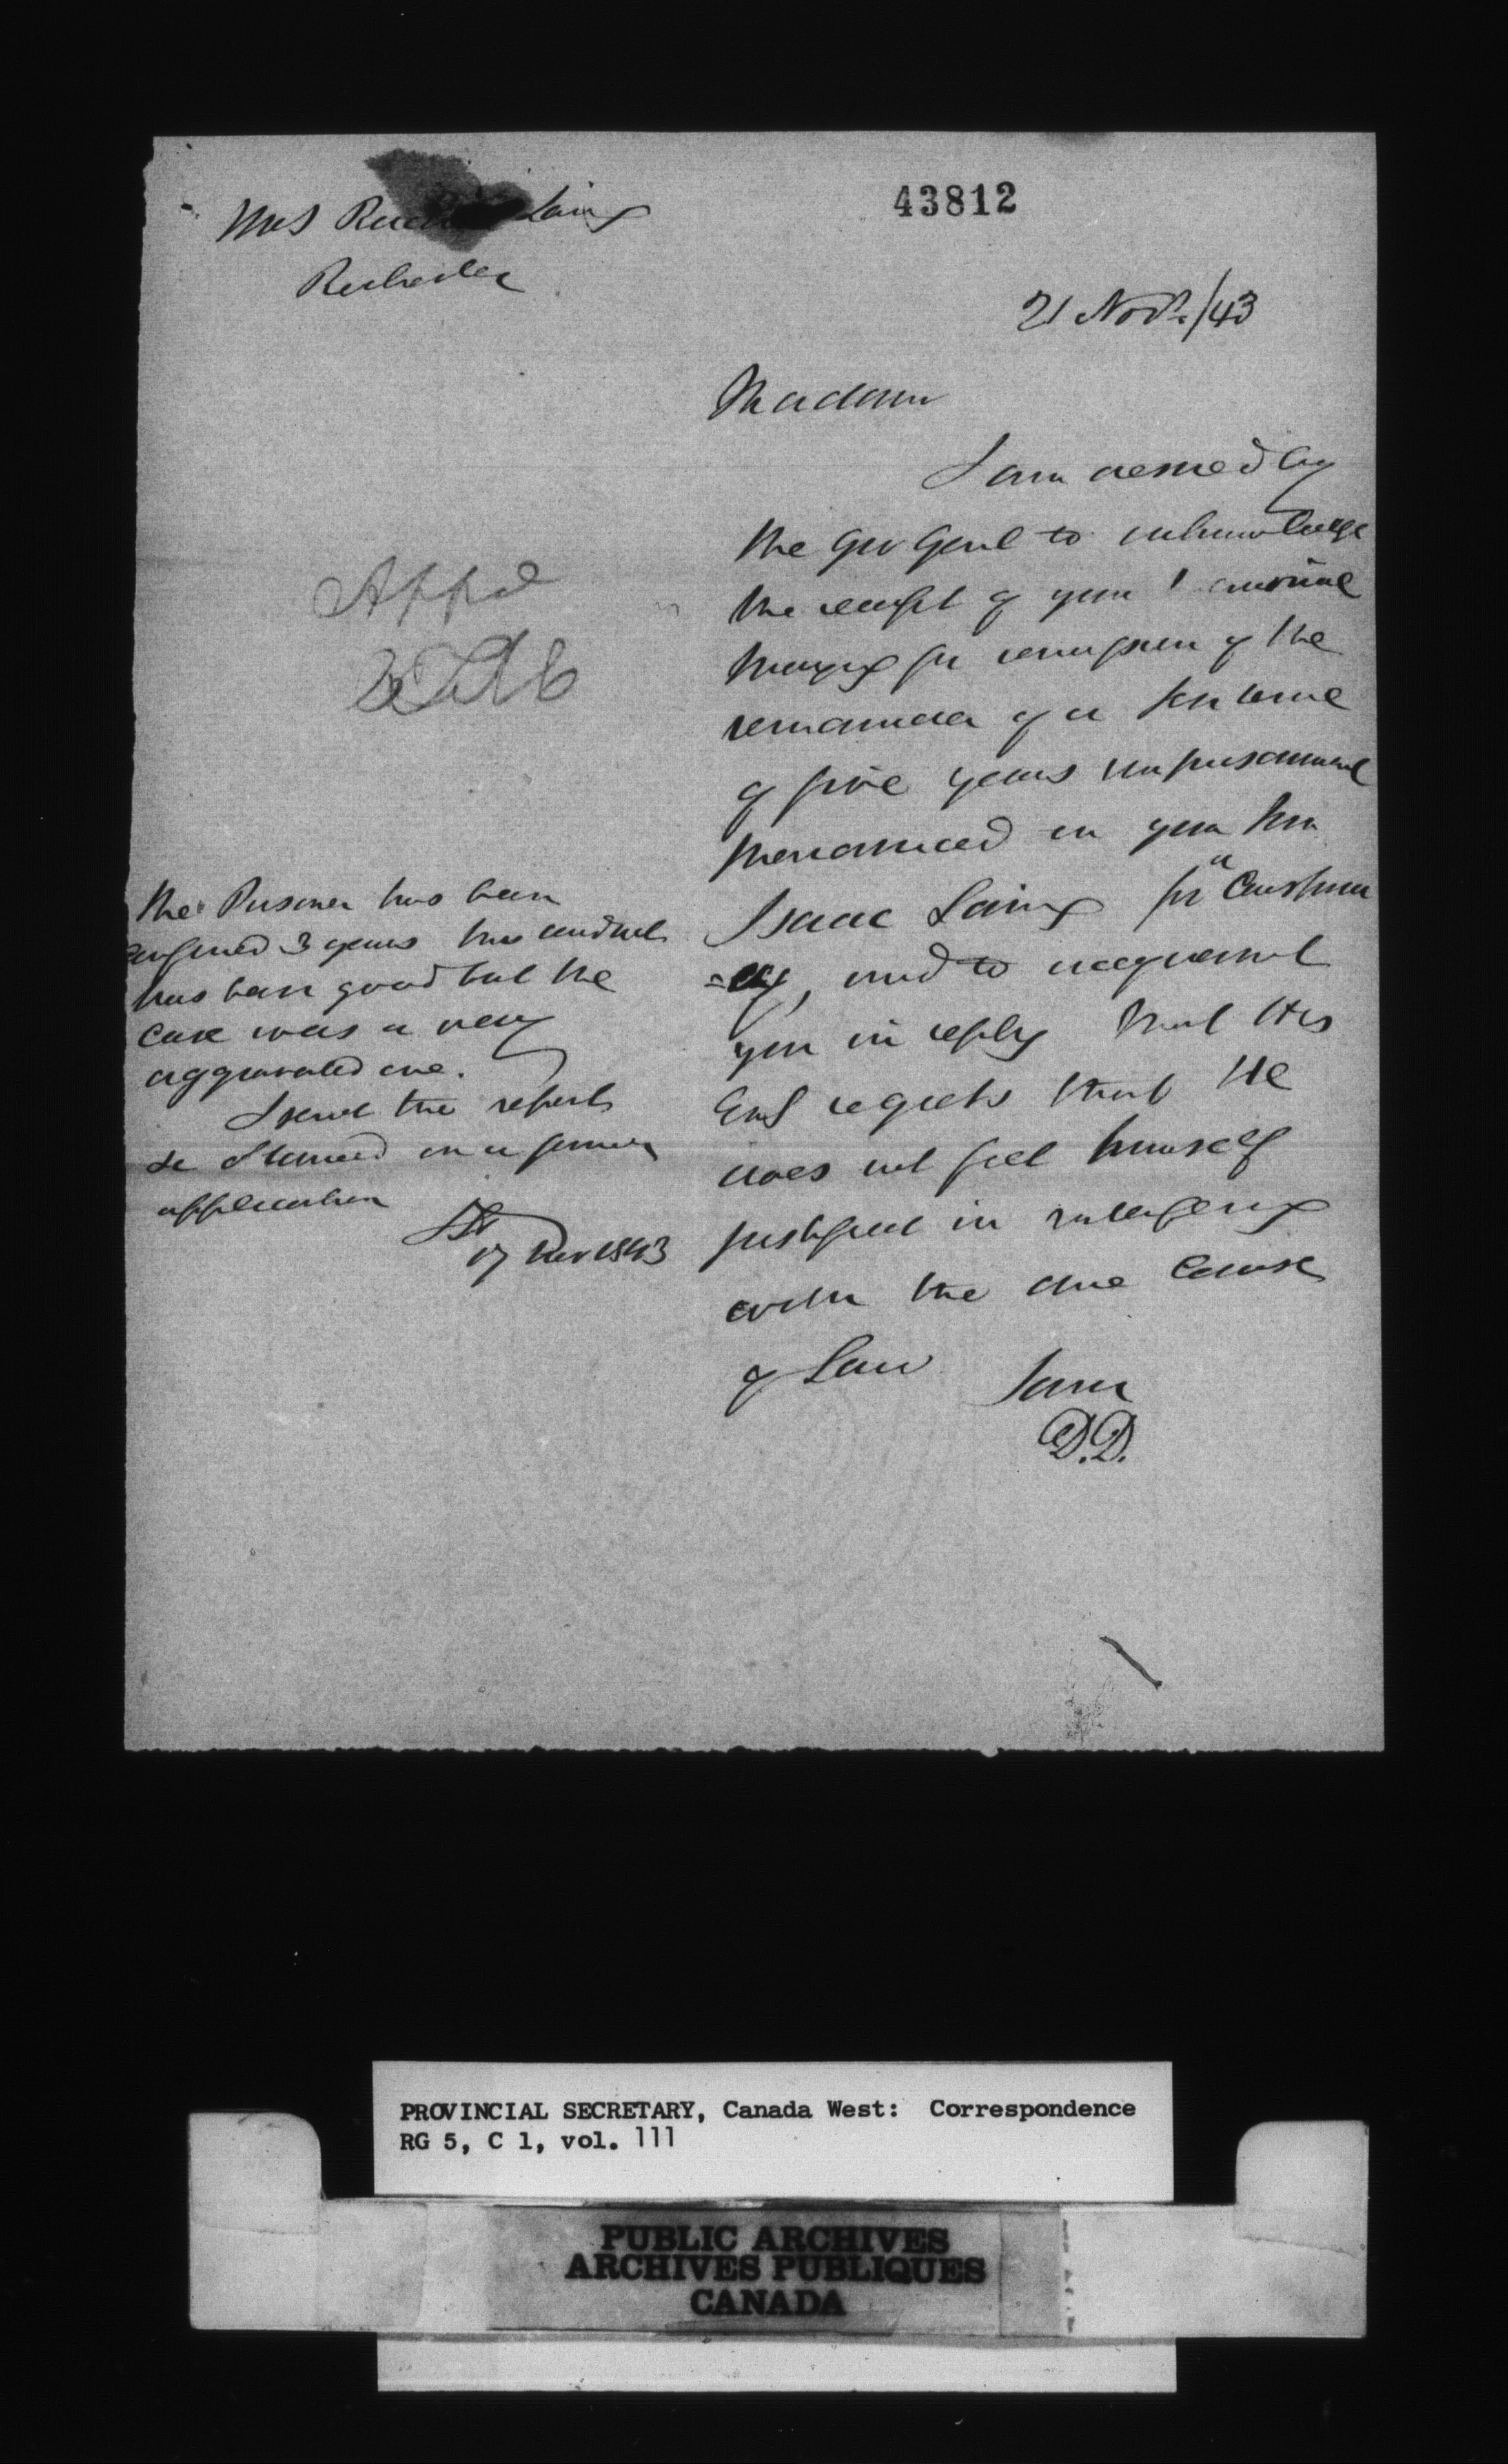 43812
Mrs Laing
Rochester
21 Novr/43
Madam
I am desired by
the Gov Genl to acknowledge
the receipt of your
praying for remission of the
remainder of a sentence
of five years imprisonment
pronounced on your son
Isaac Laing for
and to acquaint
you in reply that His
Exy regrets that He
does not feel himself
justified in interfering
with the due course
of Law
I am
D.D.
Appd
The Prisoner has been
confined 3 years his conduct
has been good but the
case was a very
aggravated one.
I send the report
obtained on a former
application
17 Nov 1843
PROVINCIAL SECRETARY, Canada West: Correspondence
RG 5, C 1, vol. 111
PUBLIC ARCHIVES
ARCHIVES PUBLIQUES
CANADA